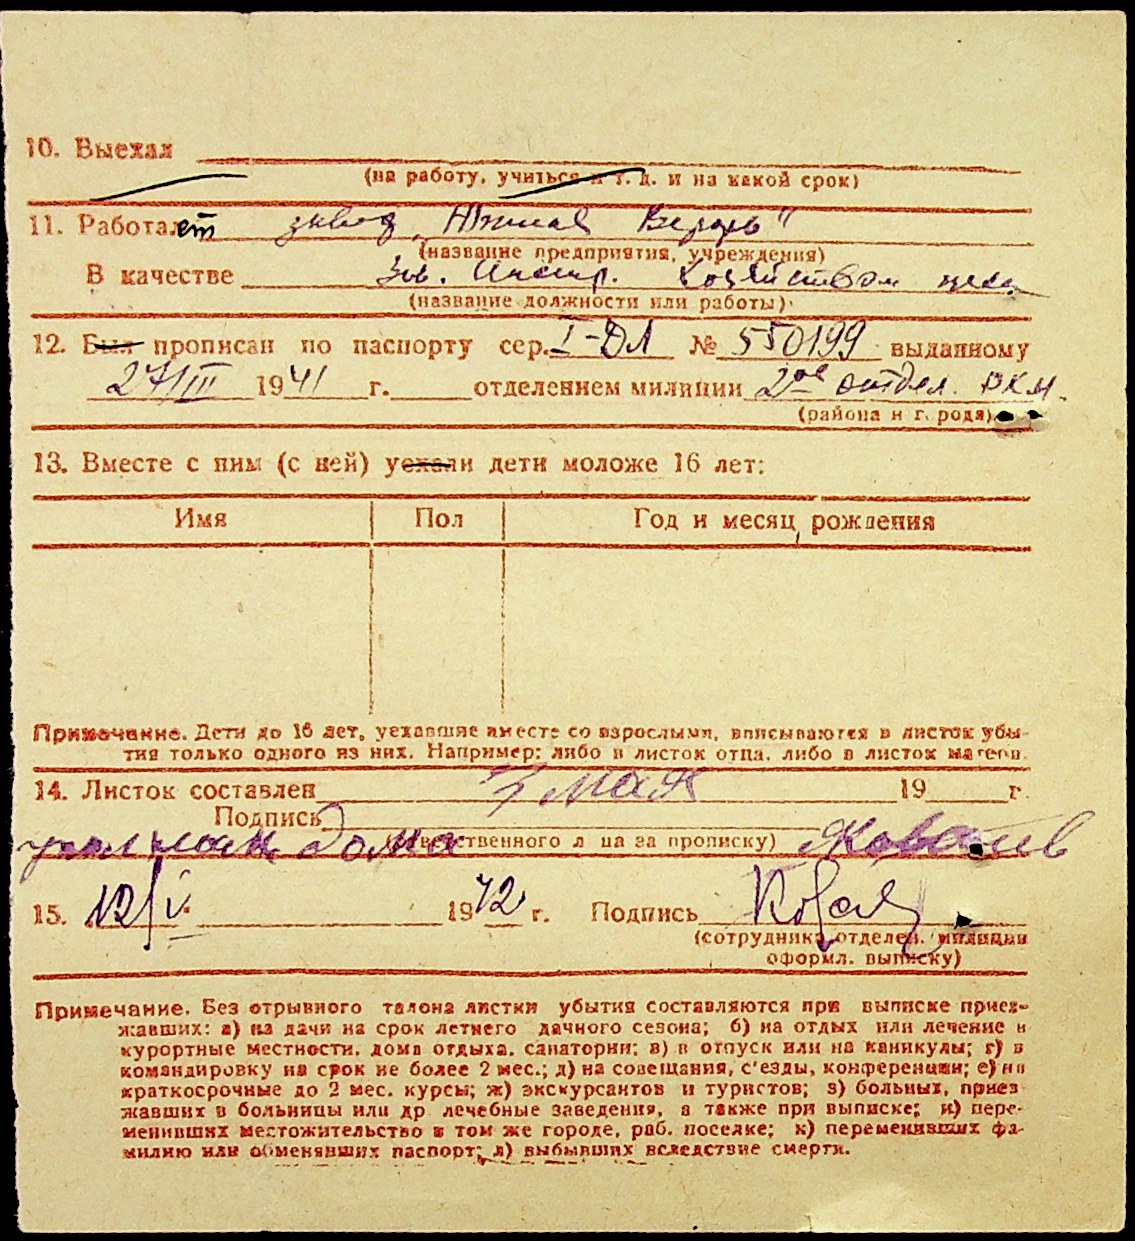 10. Выехал
(на работу, учиться и т. д. и на какой срок)
11. Работает завод „Южная Верфь"
(название предприятия, учреждения)
В качестве Зав. Инстр. Хозяйством цеха
(название должности или работы)
12. Был прописан по паспорту сер. I-ДЛ № 550199 выданному
27/III 1941 г. отделением милиции 2ое отдел. РКМ.
(района и города)
13. Вместе с ним (с ней) уехали дети моложе 16 лет:
Имя Пол Год и месяц рождения
Примечание. Дети до 16 лет, уехавшие вместе со взрослыми, вписываются в листок убы-
тия только одного из них. Например: либо в листок отца, либо в листок матери.
14. Листок составлен 7 мая 19 г.
Подпись
дома (ответственного лица за прописку)
15. 12/V 1942 г. Подпись
(сотрудника отделен. милиции
оформл. выписку)
Примечание. Без отрывного талона листки убытия составляются при выписке приез-
жавших: а) на дачи на срок летнего дачного сезона; б) на отдых или лечение в
курортные местности, дома отдыха, санатории; в) в отпуск или на каникулы; г) в
командировку на срок не более 2 мес.; д) на совещания, с'езды, конференции; е) на
краткосрочные до 2 мес. курсы; ж) экскурсантов и туристов; з) больных, приез
жавших в больницы или др лечебные заведения, а также при выписке; и) пере-
менивших местожительство в том же городе, раб. поселке; к) переменивших фа-
милию или обменявших паспорт; л) выбывших вследствие смерти.